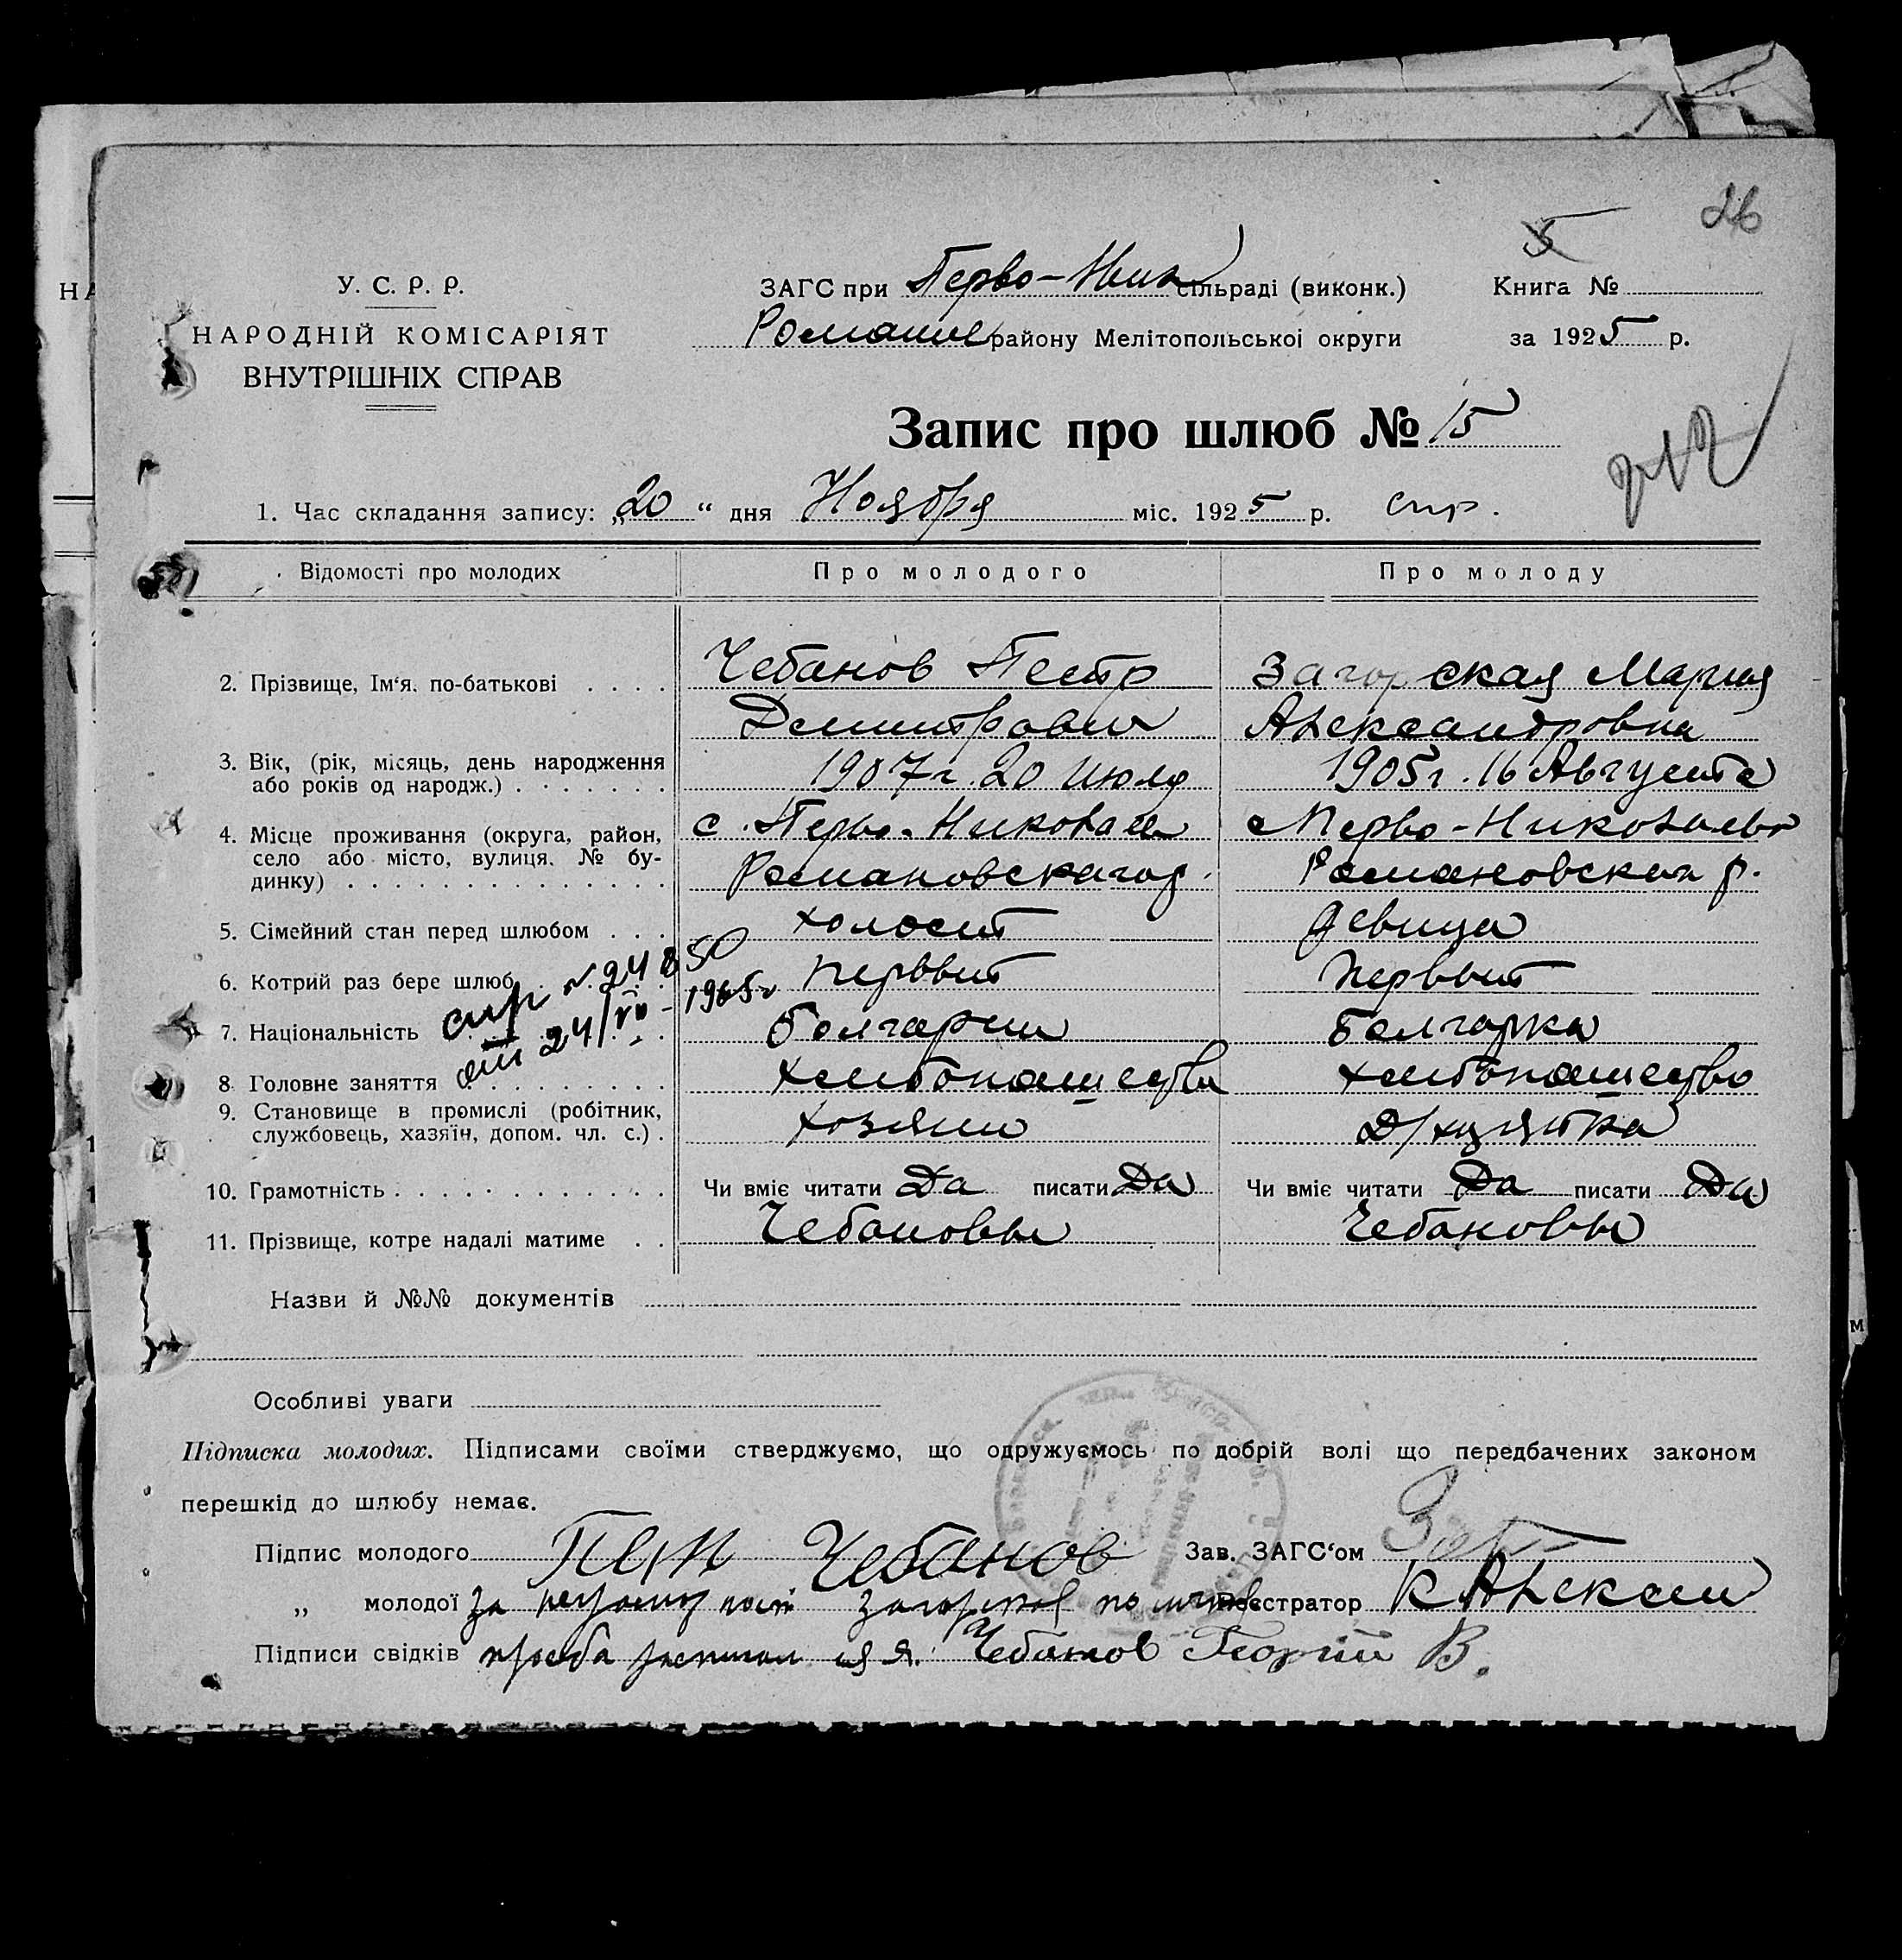 26
5
У. С. Р. Р.
НАРОДНІЙ КОМІСАРІЯТ
ВНУТРІШНІХ СПРАВ
ЗАГС при Перво-Ник сільраді (виконк.)
Книга №
Романов району Мелітопольської округи
за 1925 р.
Запис про шлюб № 15
1. Час складання запису: „20“ дня Ноября міс. 1925 р. спр.
Відомості про молодих
Про молодого
Про молоду
2. Прізвище, Ім‘я. по-батькові
Чебанов Петр
Димитрович
Загорская Мария
Александровна
3. Вік, (рік, місяць, день народження
або років од народж.)
1907 г. 20 Июля
1905 г. 16 Августа
4. Місце проживання (округа, район,
село або місто, вулиця. № бу-
динку)
с. Перво-Николаев
Романовскаго р.
с Перво-Николаев
Романовскаг р.
5. Сімейний стан перед шлюбом
холост
девица
6. Котрий раз бере шлюб
первыт
первыт
спр №
от 24/VII - 1965 г
7. Національність
болгарин
болгарка
8. Головне заняття
хлебопашество
хлебопашество
9. Становище в промислі (робітник,
службовець, хазяїн, допом. чл. с.)
хозяин
10. Грамотність
Чи вміє читати Да писати Да
Чи вміє читати Да писати Да
11. Прізвище, котре надалі матиме
Чебановы
Чебановы
Назви й №№ документів
Особливі уваги
Підписка молодих. Підписами своїми стверджуємо, що одружуємось по добрій волі що передбачених законом
перешкід до шлюбу немає.
Підпис молодого Петр Чебанов
Зав. ЗАГС‘ом
„ молодої за неграмотност Загорской по личной
Реєстратор К Алексеев
Підписи свідків просьба росписался я. Чебанов Георгий В.